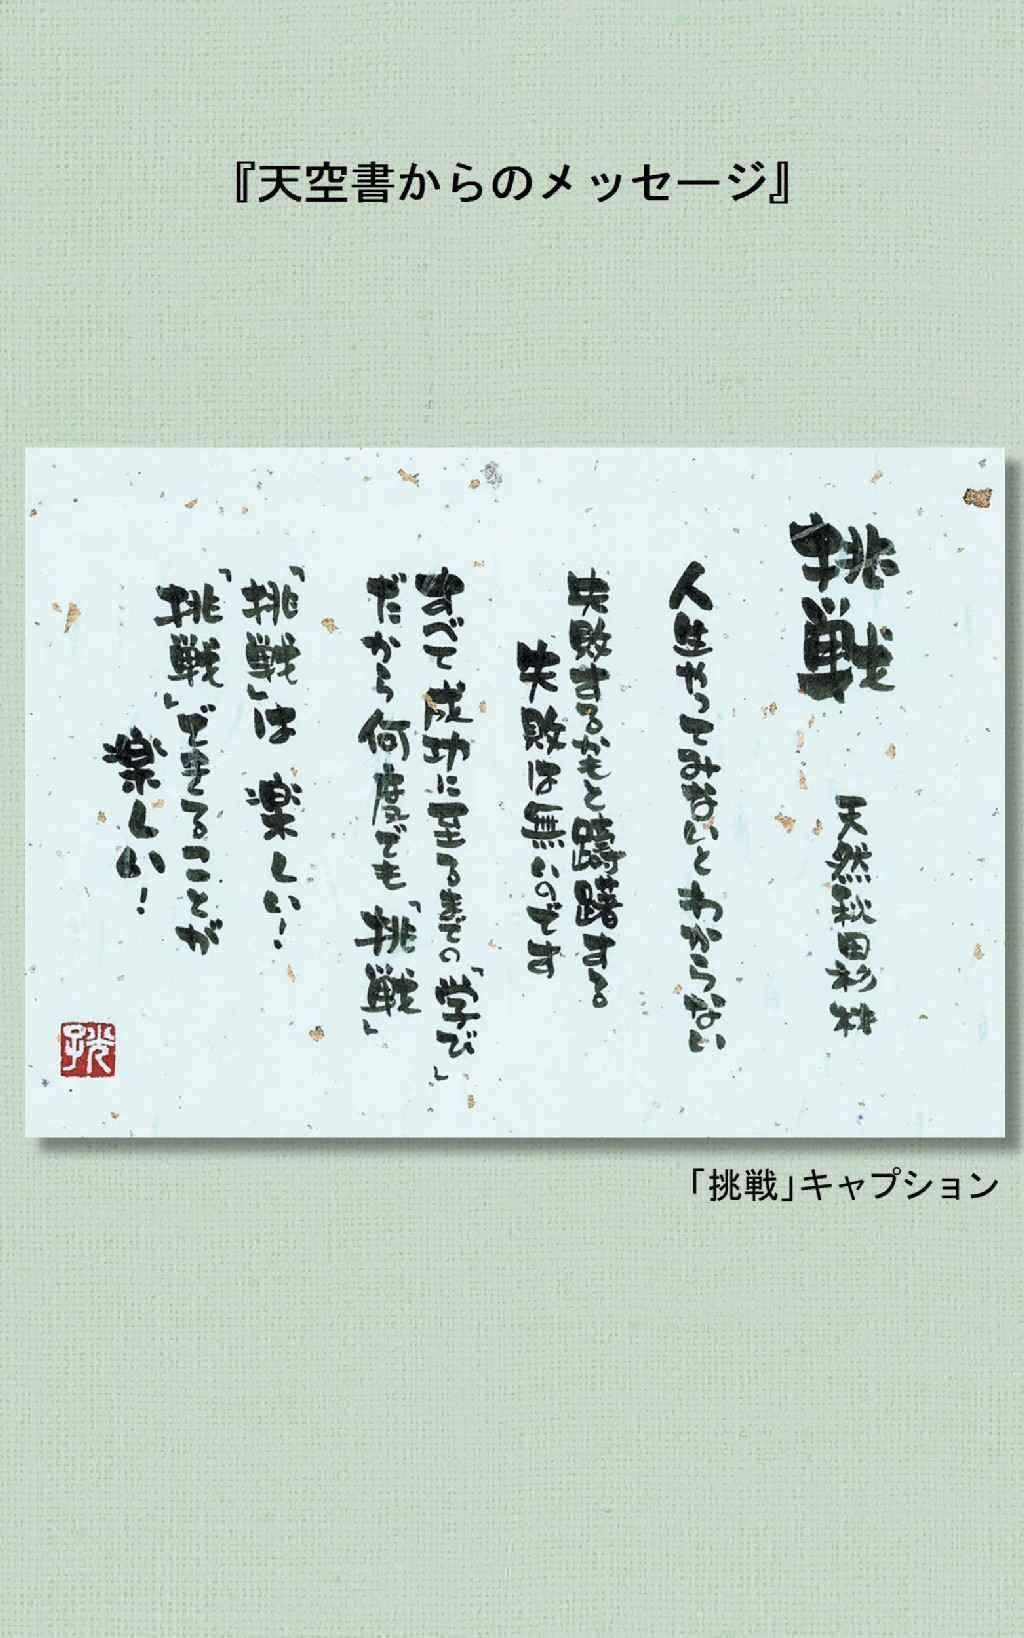 『天空書からのメッセージ』
挑戦
天然秋田杉材
人生やってみないとわからない
失敗するかもと躊躇する
失敗は無いのです
すべて成功に至るまでの「学び」
だから何度でも「挑戦」
「挑戦」は 楽しい!
「挑戦」できることが
楽しい!
「挑戦」キャプション